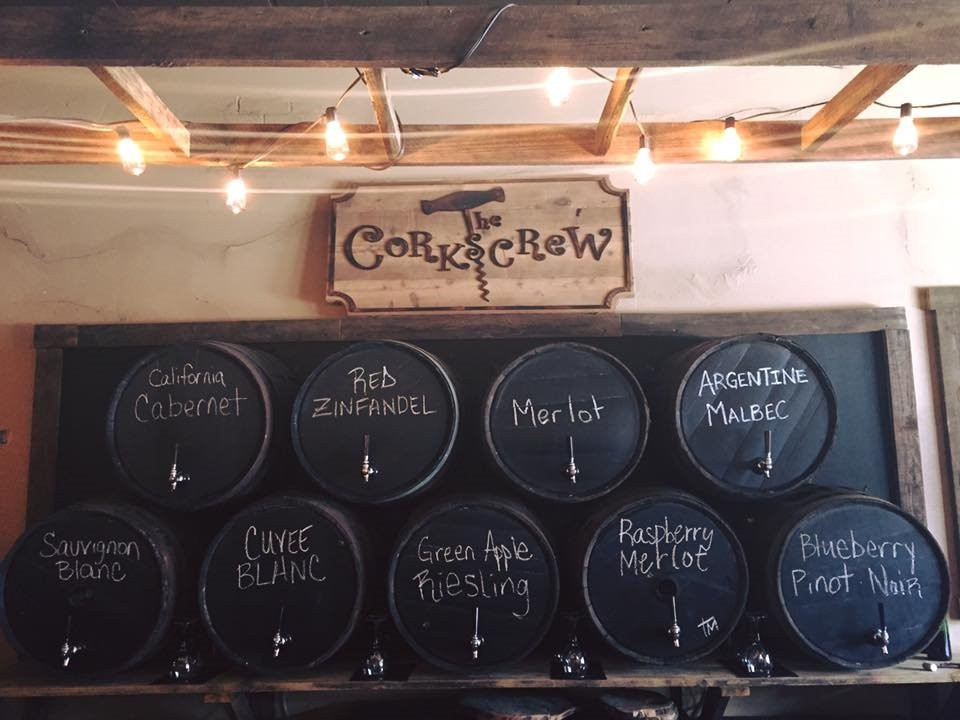 The
CorkscreW
California
Cabernet
RED
ZINFANDEL
Merlot
ARGENTINE
MALBEC
Sauvignon
Blanc
CUVEE
BLANC
Green Apple
Riesling
Raspberry
Merlot
TM
Blueberry
Pinot Noir